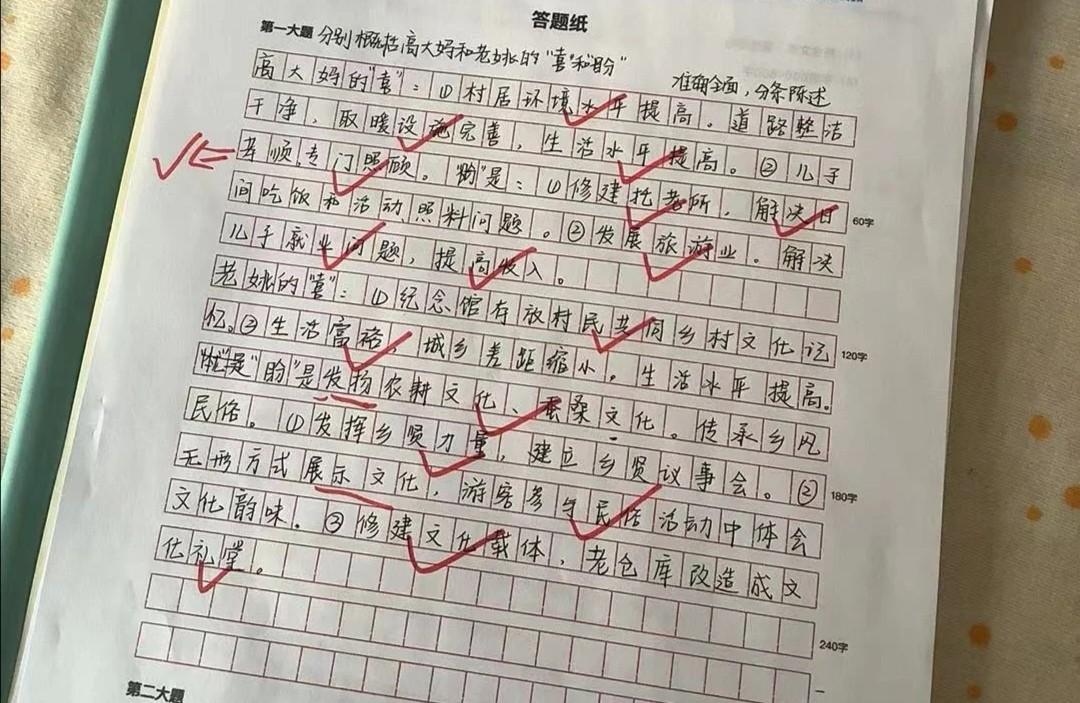 答题纸
第一大题 分别概括高大妈和老姚的“喜”和“盼”
准确全面，分条陈述
高大妈的“喜”：①村居环境水平提高。道路整洁
干净，取暖设施完善，生活水平提高。②儿子
孝顺，专门照顾。“盼”是：①修建托老所，解决日
60字
间吃饭和活动照料问题。②发展旅游业。解决
儿子就业问题，提高收入。
老姚的“喜”：①纪念馆存放村民共同乡村文化记
120字
忆。②生活富裕，城乡差距缩小，生活水平提高。
“盼”是发扬农耕文化、蚕桑文化。传承乡风
民俗。①发挥乡贤力量，建立乡贤议事会。②
180字
无形方式展示文化，游客参与民俗活动中体会
文化韵味。③修建文化载体，老仓库改造成文
化礼堂。
240字
第二大题